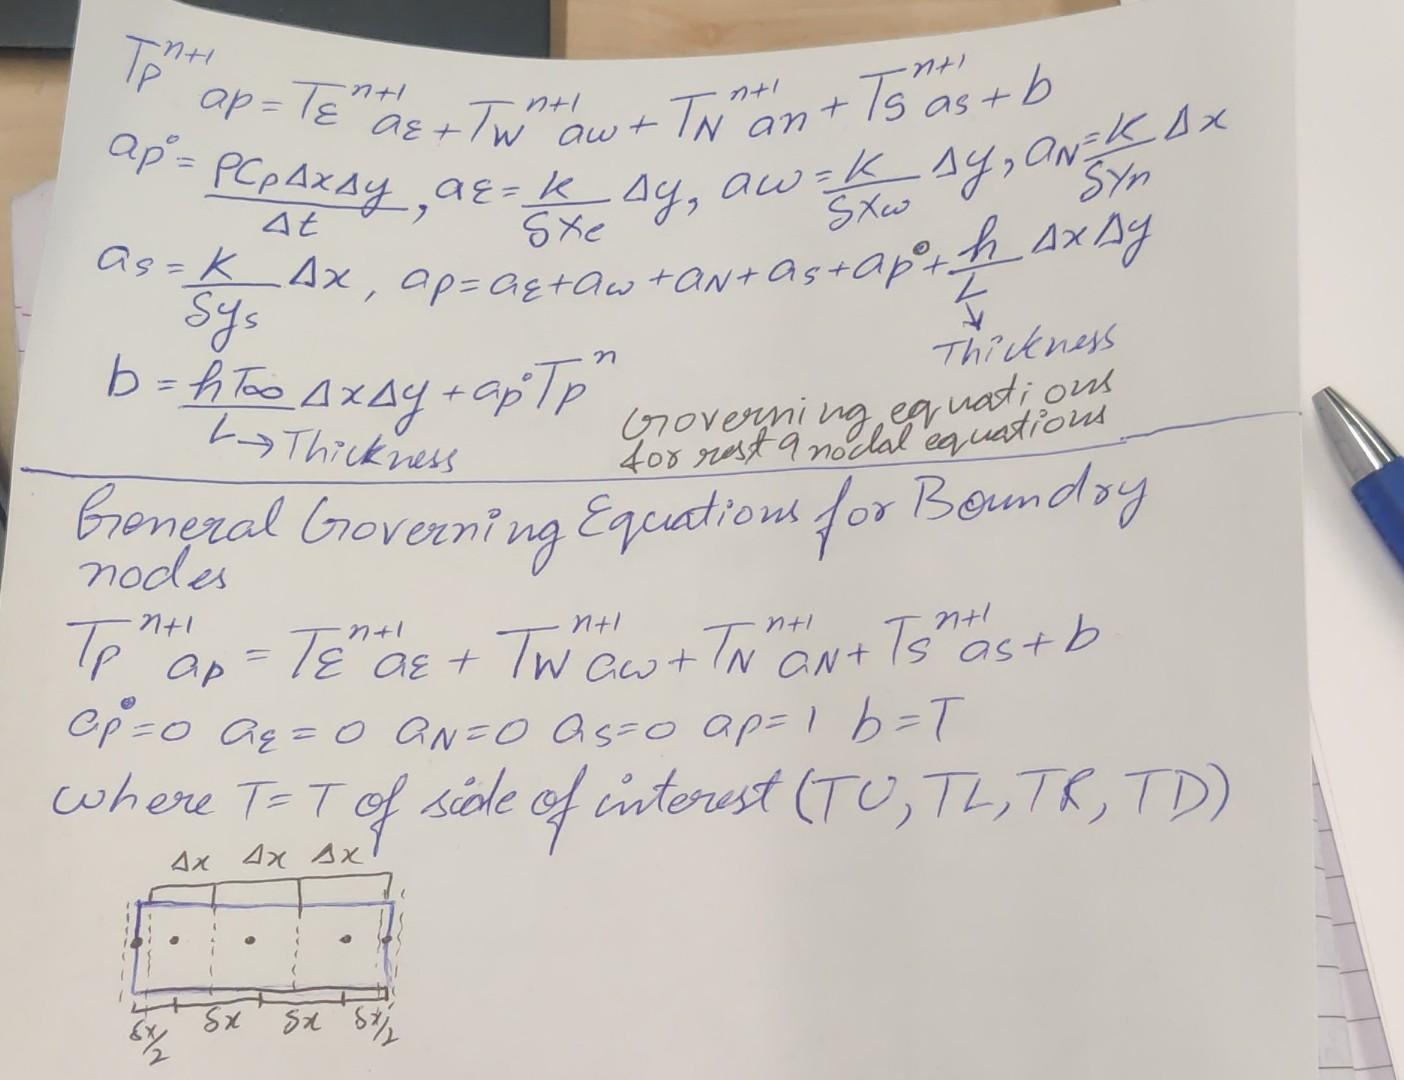 Tp^n+1 ap = TE^n+1 aE + TW^n+1 aw + TN^n+1 an + TS^n+1 as + b
ap° = ρCpΔxΔy/Δt, aE = k/δxe Δy, aw = k/δxw Δy, aN = k/δyn Δx
as = k/δys Δx, ap = aE + aw + aN + as + ap° + h/L ΔxΔy
Thickness
b = hT∞/L ΔxΔy + ap°Tp^n
→ Thickness
Governing equations
for rest 9 nodal equations
General Governing Equations for Boundry
nodes
Tp^n+1 ap = TE^n+1 aE + TW^n+1 aw + TN^n+1 aN + TS^n+1 as + b
ap° = 0 aE = 0 aN = 0 as = 0 ap = 1 b = T
where T = T of side of interest (TU, TL, TR, TD)
Δx Δx Δx
δx/2 δx δx δx/2